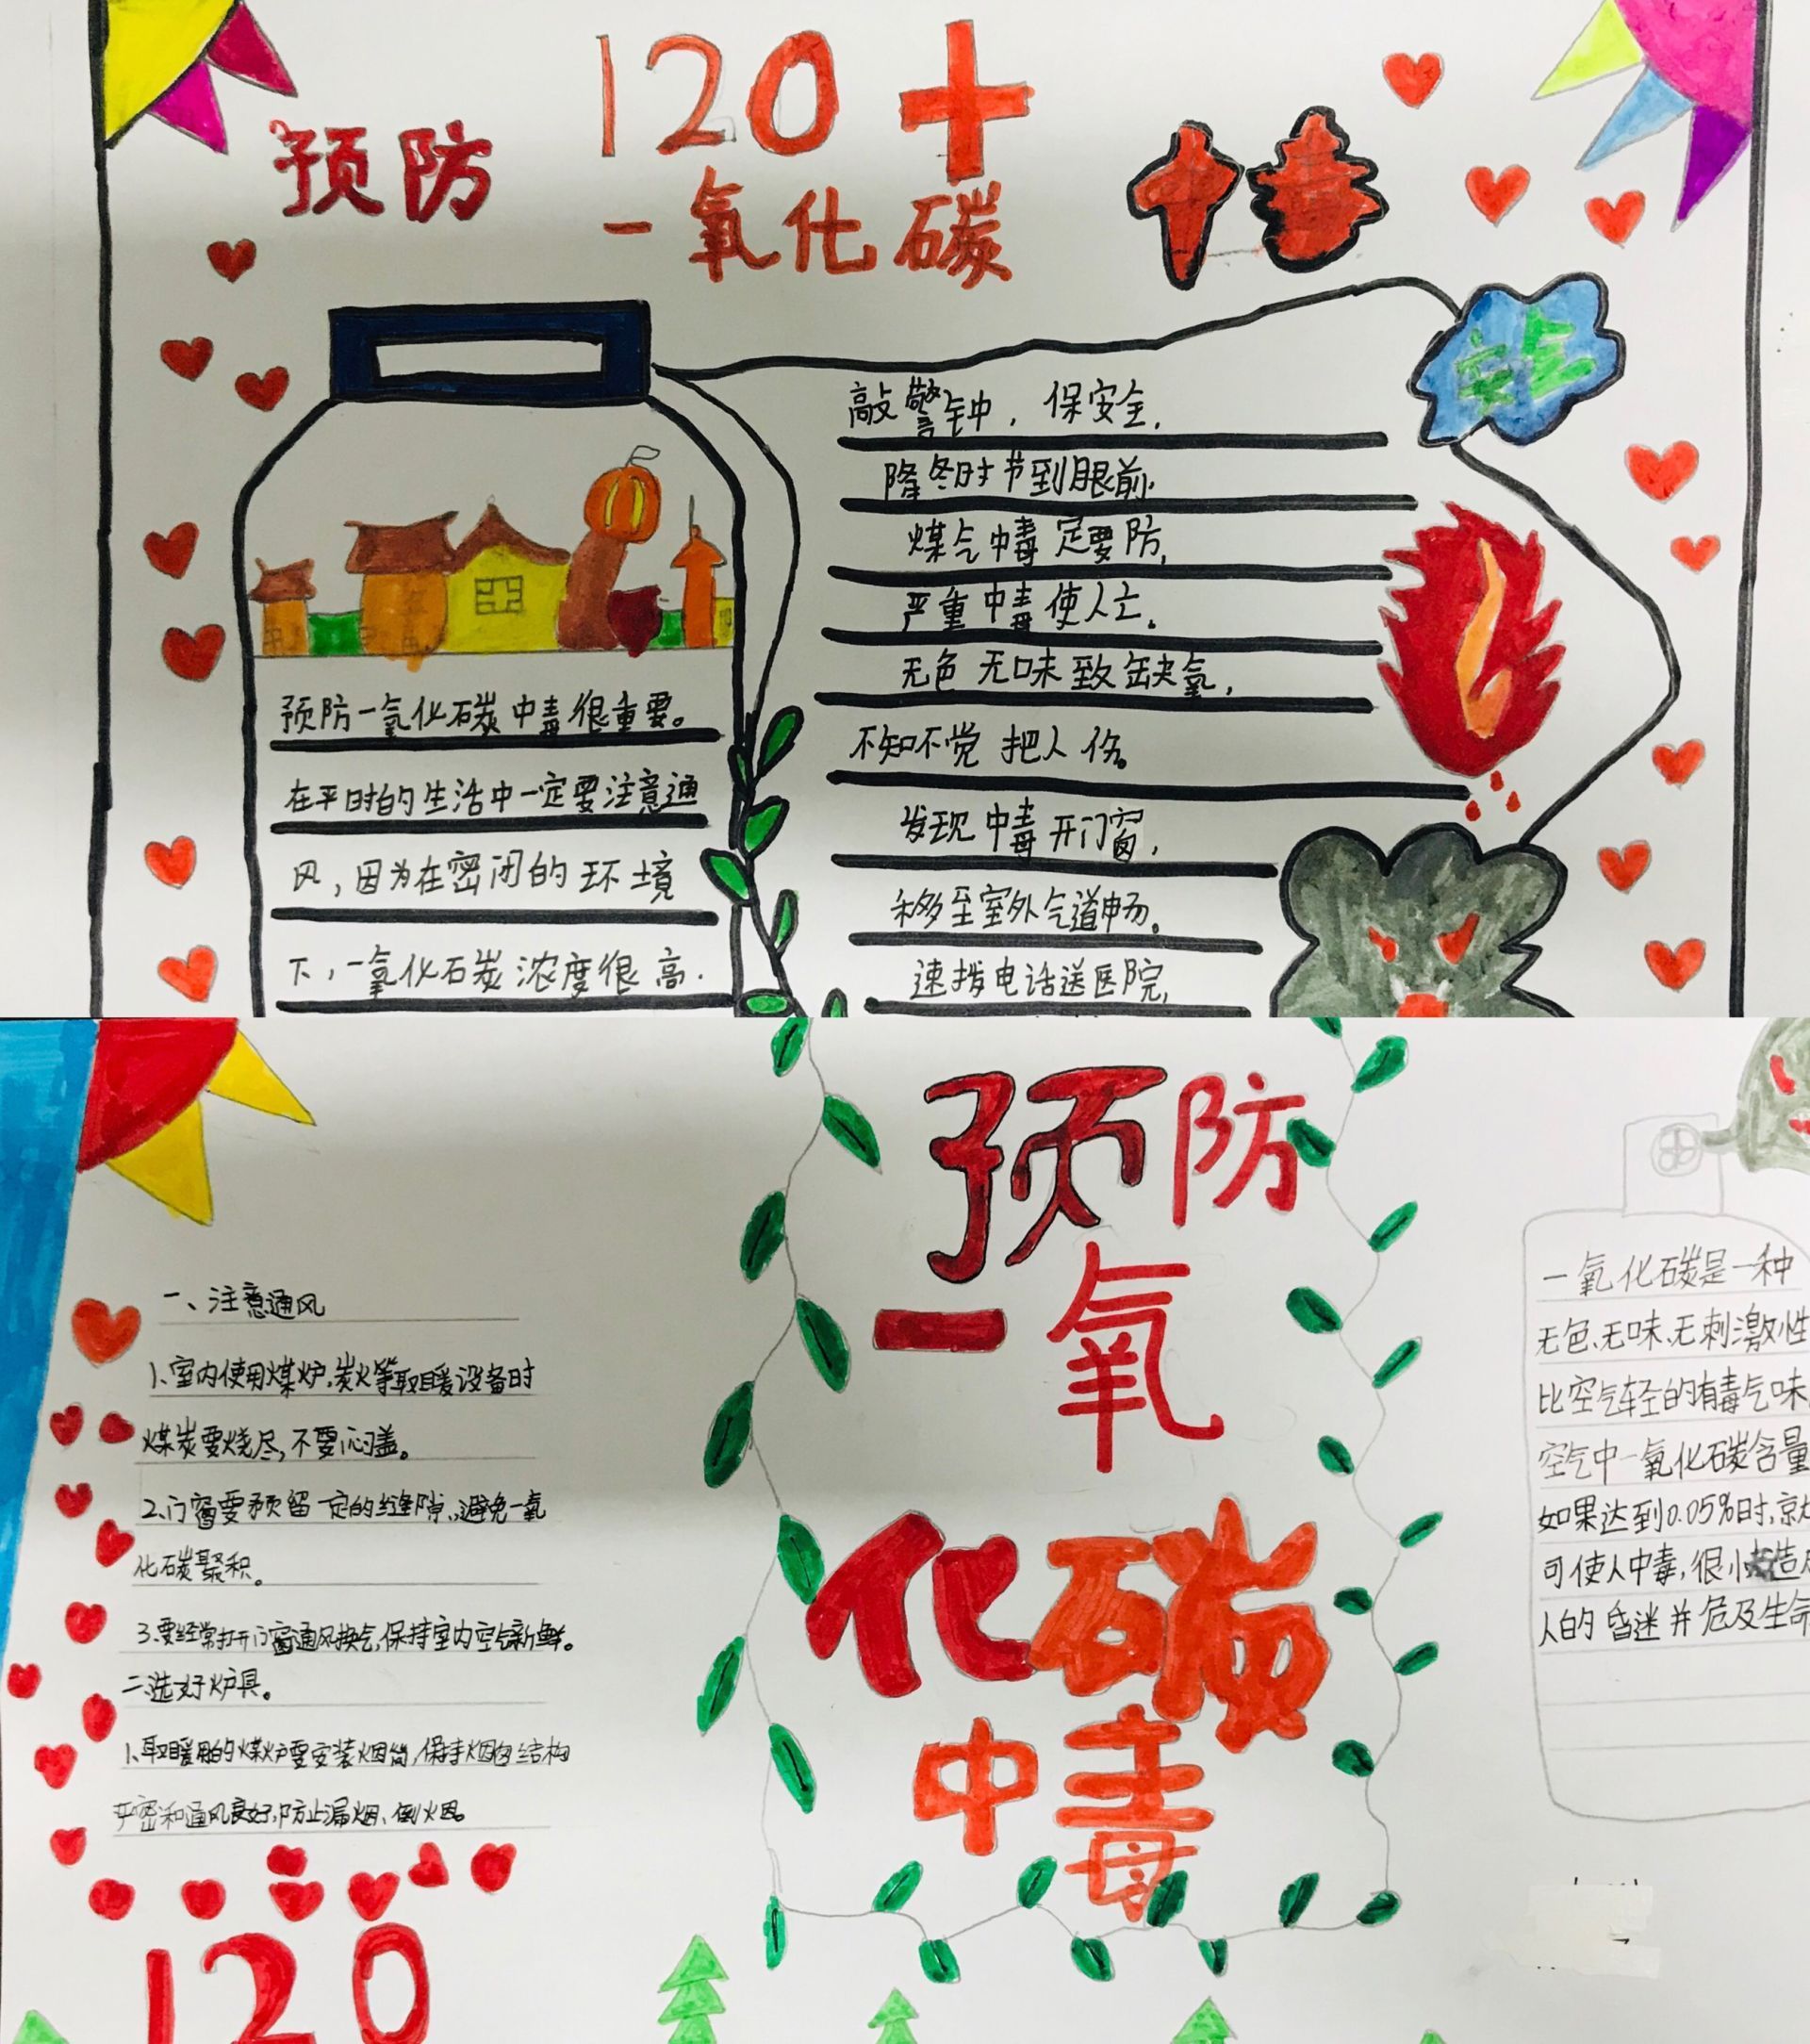 预防
120
一氧化碳
中毒
安全
敲警钟，保安全，
隆冬时节到眼前.
煤气中毒定要防，
严重中毒使人亡。
无色无味致缺氧，
不知不觉把人伤。
发现中毒开门窗，
移至室外气道畅。
速拨电话送医院，
预防一氧化碳中毒很重要。
在平时的生活中一定要注意通
风，因为在密闭的环境
下，一氧化碳浓度很高.
预防
一氧
化碳
中毒
一、注意通风
1、室内使用煤炉，炭火等取暖设备时
煤炭要烧尽，不要闷盖。
2、门窗要预留一定的缝隙，避免一氧
化碳聚积。
3、要经常打开门窗通风换气，保持室内空气新鲜。
二选好炉具。
1、取暖用的煤炉要安装烟筒，保持烟囱结构
严密和通风良好，防止漏烟、倒烟。
120
一氧化碳是一种
无色、无味、无刺激性
比空气轻的有毒气味
空气中一氧化碳含量
如果达到0.05%时，就
可使人中毒，很快造
人的昏迷并危及生命